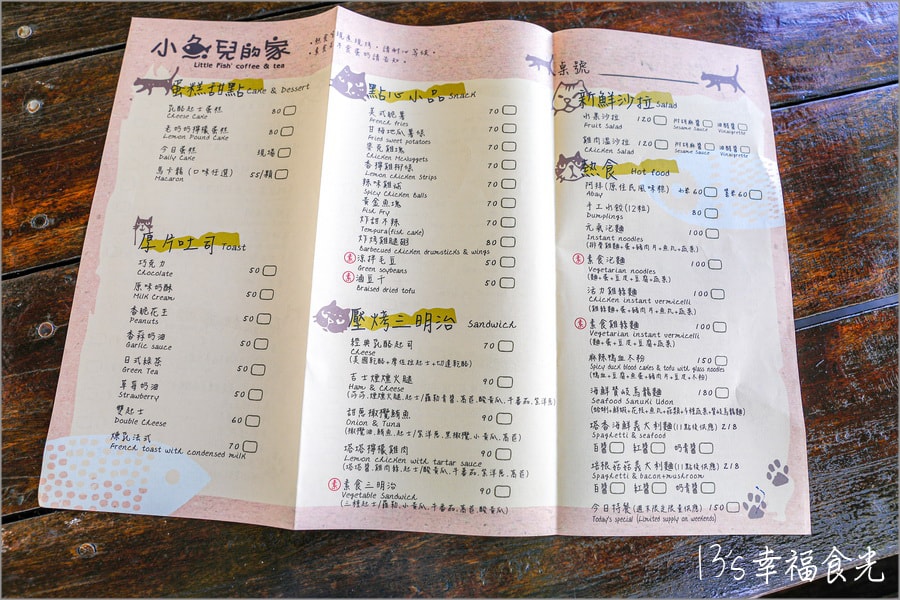 小魚兒的家
Little Fish' coffee & tea
蛋糕甜點 Cake & Dessert
乳酪起士蛋糕 80
Cheese Cake
老奶奶檸檬蛋糕 80
Lemon Pound Cake
今日蛋糕 現場
Daily Cake
馬卡龍 (口味任選) 55/顆
Macaron
厚片吐司 Toast
巧克力 50
Chocolate
原味奶酥 50
Milk Cream
香脆花生 50
Peanuts
香蒜奶油 50
Garlic sauce
日式綠茶 50
Green Tea
草莓奶油 50
Strawberry
雙起士 60
Double Cheese
煉乳法式 70
French toast with condensed milk
點心小品 Snack
美式脆薯 70
French fries
甘梅地瓜薯條 70
Fried sweet potatoes
麥克雞塊 70
Chicken McNuggets
香檸雞柳條 70
Lemon chicken strips
辣味雞球 70
Spicy Chicken Balls
黃金魚塊 70
Fish Fry
炸甜不辣 70
Tempura(fish cake)
炸烤雞腿翅 80
Barbecued chicken drumsticks & wings
素 涼拌毛豆 50
Green soybeans
素 滷豆干 50
Braised dried tofu
壓烤三明治 Sandwich
經典乳酪起司 70
Cheese
(美國乾酪+摩佐拉起士+切達乾酪)
吉士煙燻火腿 90
Ham & Cheese
甜蔥橄欖鮪魚 90
Onion & Tuna
(橄欖油.鮪魚.起士/紫洋蔥.黑橄欖.小黃瓜.萵苣)
塔塔檸檬雞肉 90
Lemon chicken with tartar sauce
(塔塔醬.雞肉條.起士/酸黃瓜.牛番茄.紫洋蔥.萵苣)
素 素食三明治 90
Vegetable Sandwich
(三種起士/蘿蔔.小黃瓜.牛番茄.萵苣.酸黃瓜)
桌號
新鮮沙拉 Salad
水果沙拉 120 和風麻醬 油醋醬
Fruit Salad Sesame Sauce Vinaigrette
雞肉溫沙拉 120 和風麻醬 油醋醬
Chicken Salad Sesame Sauce Vinaigrette
熱食 Hot food
阿拜(原住民風味粽) 小米60 紫米60
Abay
手工水餃(12粒) 80
Dumplings
元氣泡麵 100
Instant noodles
素 素食泡麵 100
Vegetarian noodles
(麵+蛋+豆皮+豆腐+蔬菜)
活力雞絲麵 100
Chicken instant vermicelli
(雞絲麵+蛋+豬肉片+魚丸+蔬菜)
素 素食雞絲麵 100
Vegetarian instant vermicelli
(麵+蛋+豆皮+豆腐+蔬菜)
麻辣鴨血冬粉 150
Spicy duck blood cakes & tofu with glass noodles
(鴨血+豆腐+魚蛋+豬肉片+豆皮+冬粉)
海鮮讚岐烏龍麵 180
Seafood Sanuki Udon
塔香海鮮義大利麵(11點後供應) 218
Spaghetti & seafood
白醬 紅醬 奶青醬
培根菇菇義大利麵(11點後供應) 218
Spaghetti & bacon+mushroom
白醬 紅醬 奶青醬
今日特餐(週末限定限量供應) 150
Today's special (Limited supply on weekends)
13's幸福食光